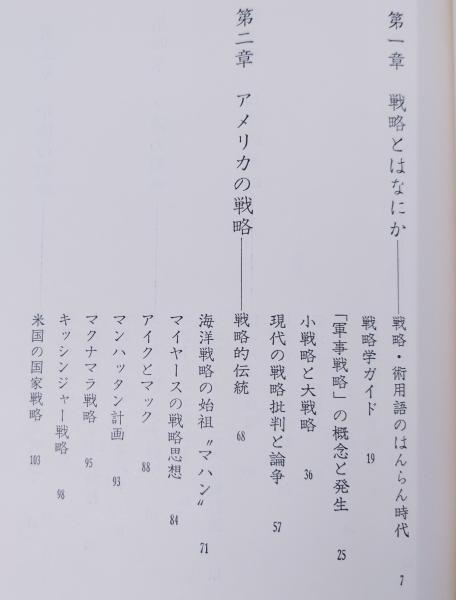 第一章　戦略とはなにか――戦略・術用語のはんらん時代　7
戦略学ガイド　19
「軍事戦略」の概念と発生　25
小戦略と大戦略　36
現代の戦略批判と論争　57
第二章　アメリカの戦略――戦略的伝統　68
海洋戦略の始祖〝マハン〟　71
マイヤースの戦略思想　84
アイクとマック　88
マンハッタン計画　93
マクナマラ戦略　95
キッシンジャー戦略　98
米国の国家戦略　103